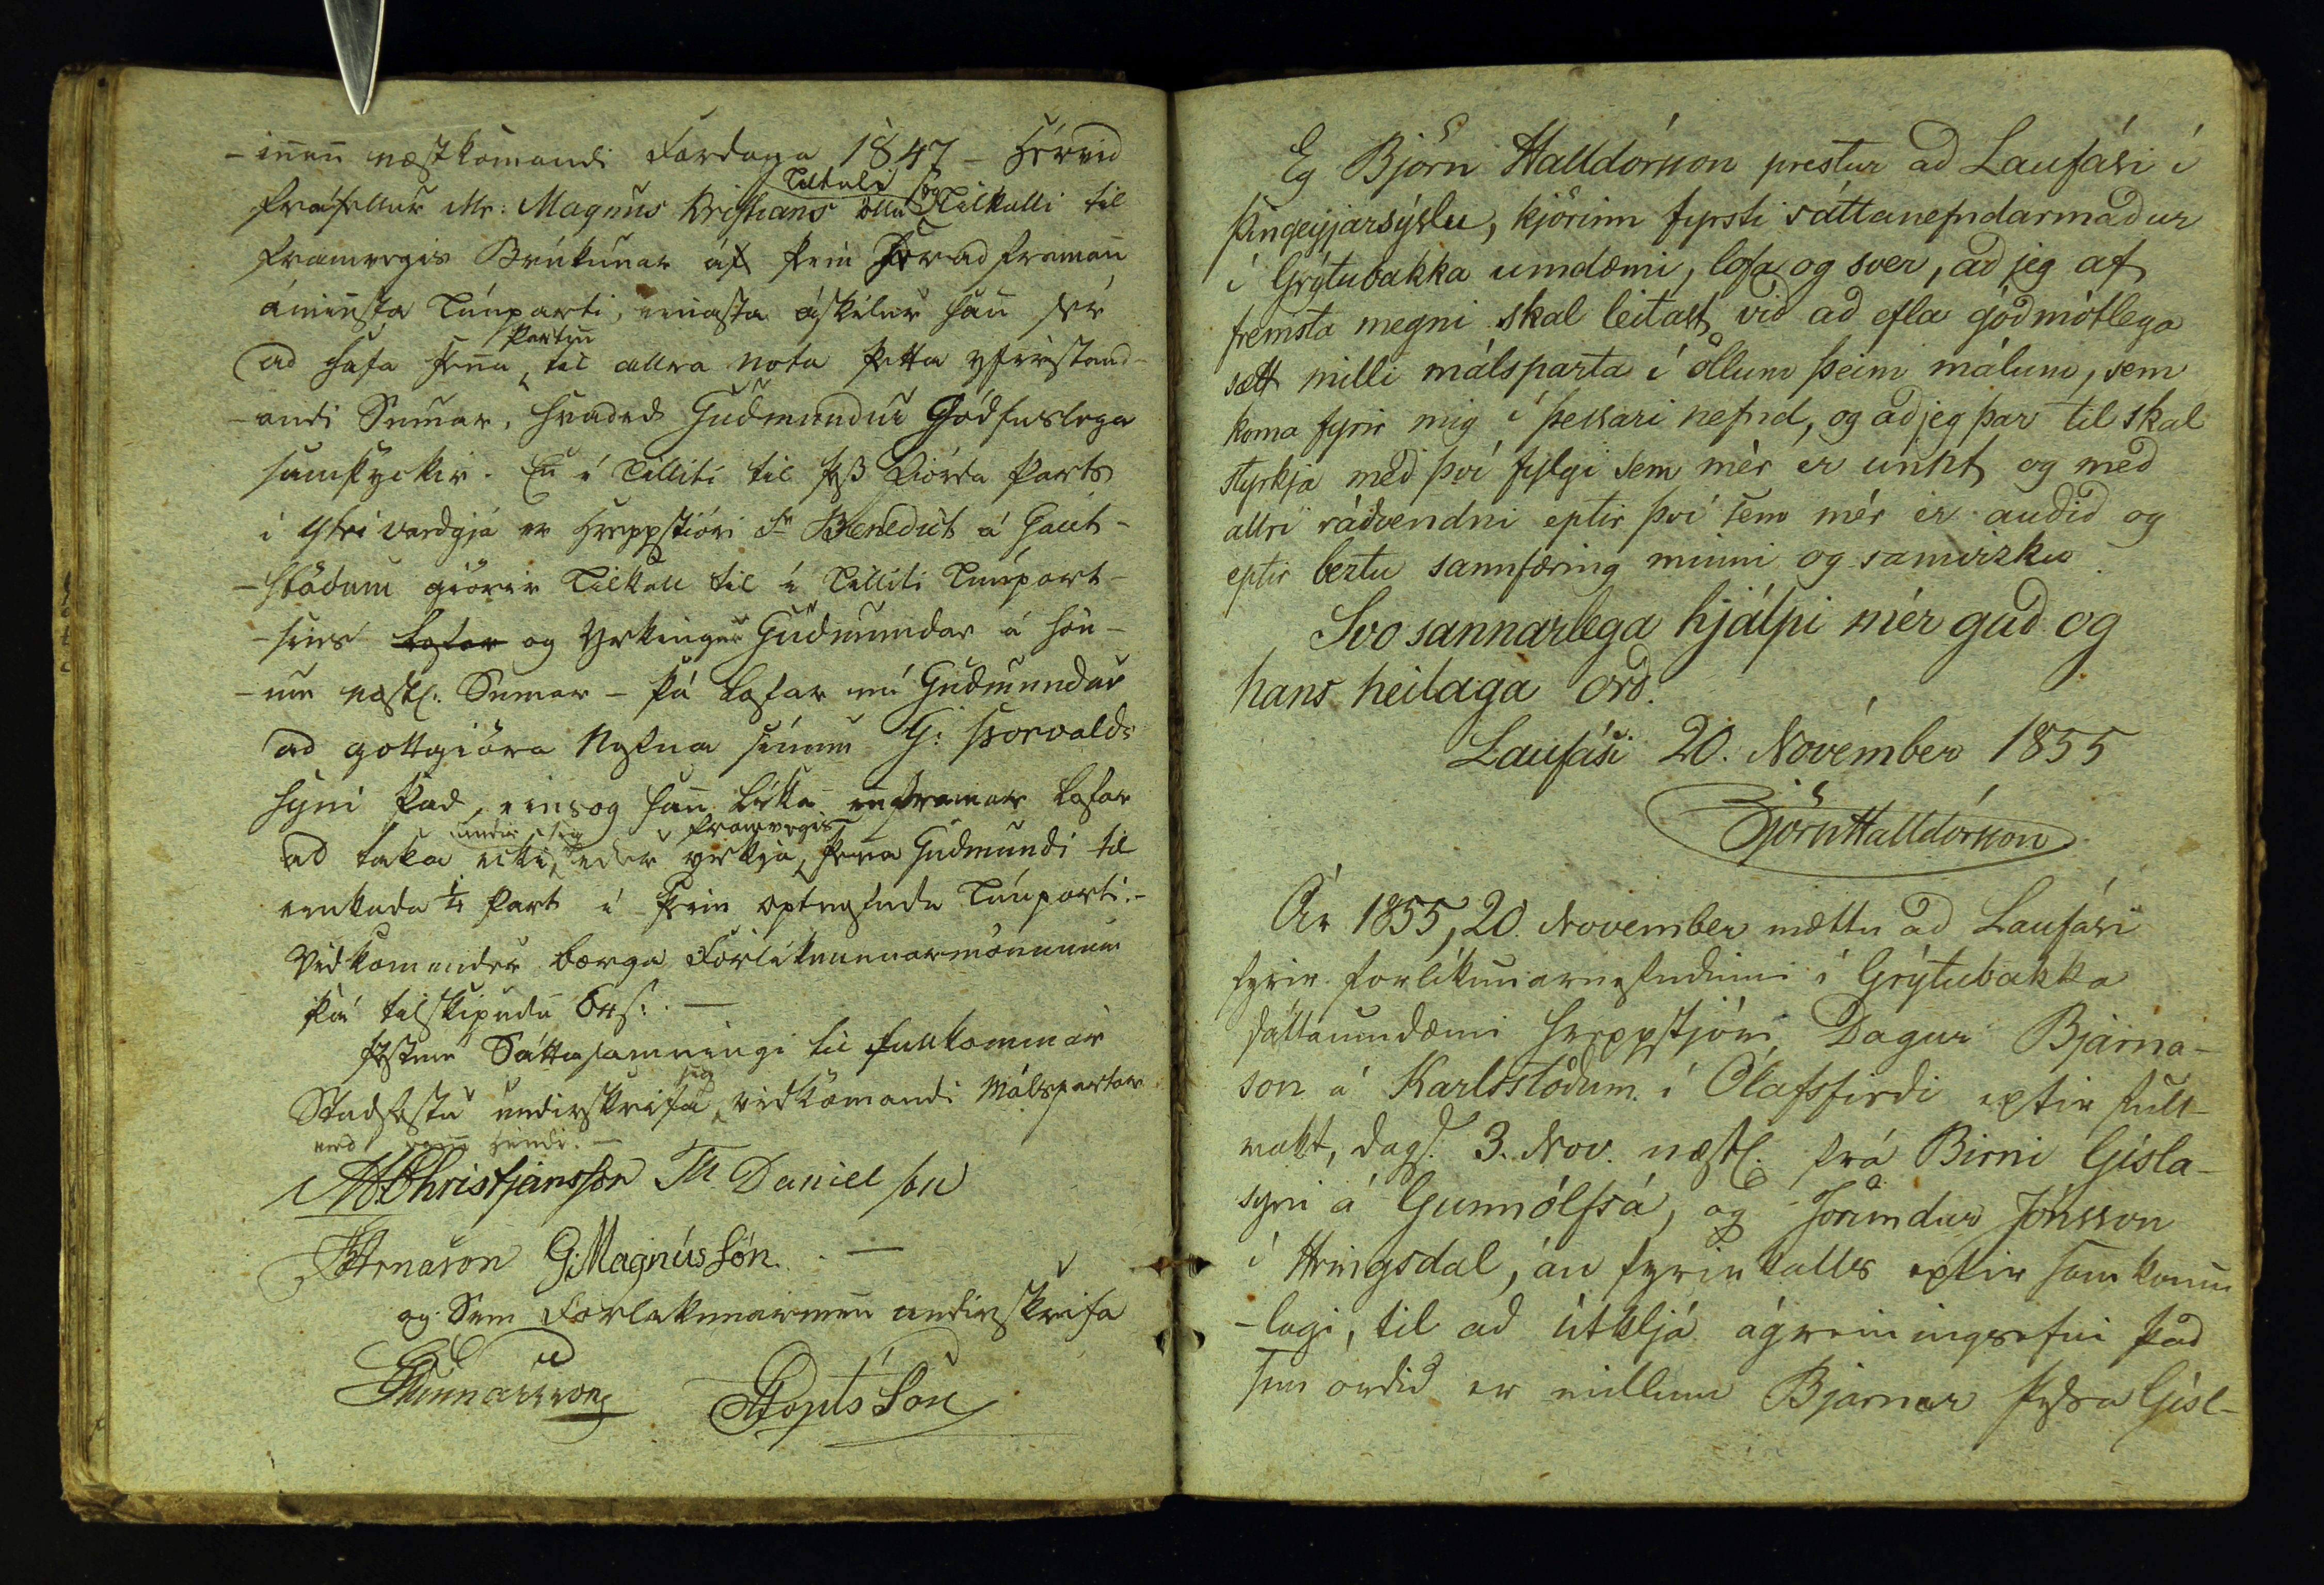 -innan næstkomandi Fardaga 1847 - Hérvid
fráfellur Mr: Magnus Kristians öllu Tiltali og Tilkalli til
framvegis Brúkunar áf þeim hér ad framan
áminsta Túnparti, einasta áskilur han sér
ad hafa henn Partin til allra nota þetta yfirstand-
-andi Sumar, hvaded Gudmundur Gódfuslega
samþyckir. En i Tilliti til þess Fiórda Parts
i Ytri vardgjá er Hreppstióri Sr Benedict á Gaut-
-stödum giörir Tilkall til i Tilliti Túnpart-
-sins lofar og Yrkingar Gudmundar á hön-
-um næstl: Sumar - þá lofar nú Gudmundur
ad gottgiöra Nefna sínum G: Þorvalds
syni þad, eins og han lika en framar lofar
ad taka ecki under sig eder yrkja framvegis þenna Gudmundi til
einkada ¼ Part i þeim optnefnda Túnparti.-
Vidkomendur borga Forlikunarmönnunum
þá tilskipudu 64 s: . -
Þessum Sáttasamningi til fullkominnar
Stadfestu undirskrifa sig vidkomandi Málspartar
med Hendi. -
MChristjánsson M Danielson
JArnason G. Magnússón. . -
og Sem Forlikunarmenn undirskrifa
Gunnarsson JLoptsSon
Eg Björn Halldórsson prestur að Laufási í
Þingeyjarsýslu, kjörinn fyrsti sáttanefndarmaður
í Grýtubakka umdæmi, lofa og sver, að jeg af
fremsta megni skal leitast við að efla góðmótlega
sætt milli málsparta í öllum þeim málum, sem
koma fyrir mig í þessari nefnd, og að jeg þar til skal
styrkja með því fylgi sem mér er unnt og með
allri ráðvendni eptir því sem mér er auðið og
eptir beztu sannfæring minni og samvizku.
Svo sannarlega hjálpi mér guð og
hans heilaga orð.
Laufási 20. November 1855
Björn Halldórsson
Ár 1855, 20. November mættu að Laufási
fyrir forlíkunarnefndinni í Grýtubakka
sáttaumdæmi hreppstjóri Dagur Bjarna-
son á Karlsstöðum í Ólafsfirði eptir full-
makt, dags. 3. Nov. næstl. frá Birni Gísla-
syni á Gunnólfsá, og Jörundur Jónsson
í Hringsdal, án fyrirkalls eptir samkomu
-lagi, til að útkljá ágreiningsefni það
sem orðið er millum Bjarnar þessa Gísl-